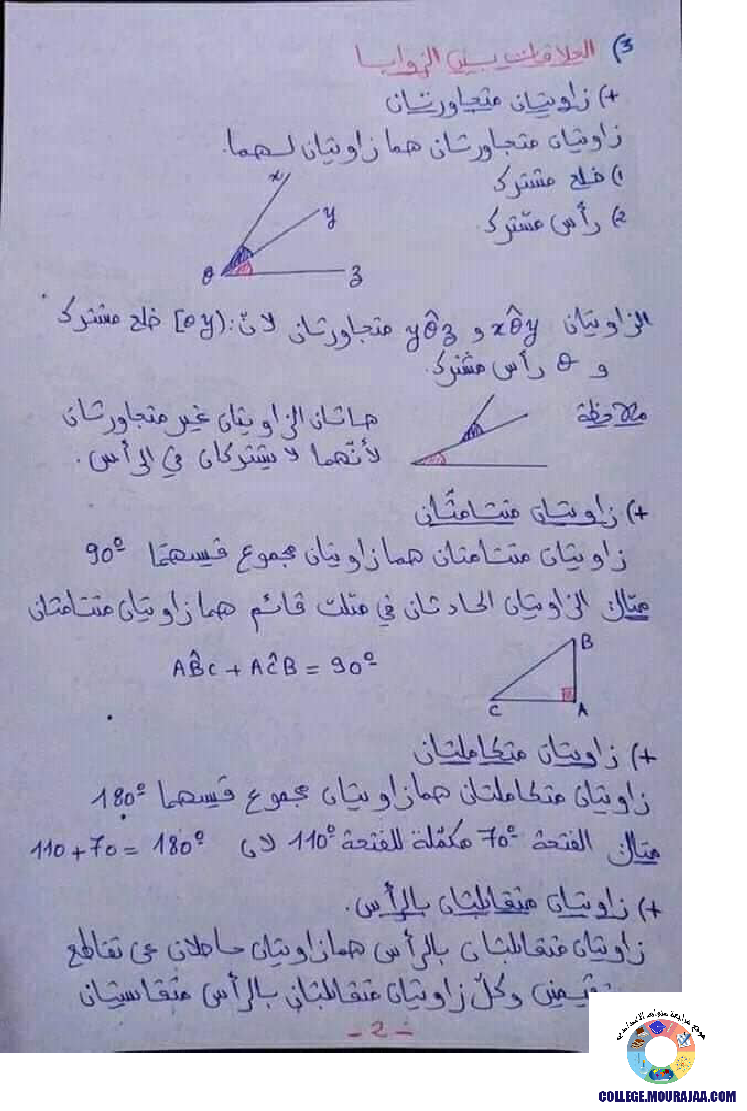 3) العلاقات بين الزوايا
+) زاويتان متجاورتان
زاويتان متجاورتان هما زاويتان لهما.
1) ضلع مشترك
2) رأس مشترك.
x
y
O
z
الزاويتان xÔy و yÔz متجاورتان لأنّ: [oy) ضلع مشترك
و O رأس مشترك.
ملاحظة
هاتان الزاويتان غير متجاورتان
لأنّهما لا يشتركان في الرأس.
+) زاويتان متتامتّان
زاويتان متتامتان هما زاويتان مجموع قيسهما 90°
مثال الزاويتان الحادتان في مثلث قائم هما زاويتان متتامتان
AB̂C + AĈB = 90°
B
C
A
+) زاويتان متكاملتان
زاويتان متكاملتان هما زاويتان مجموع قيسهما 180°
مثال الفتحة 70° مكمّلة للفتحة 110° لأن 110+70 = 180°
+) زاويتان متقابلتان بالرأس.
زاويتان متقابلتان بالرأس هما زاويتان حاصلان عن تقاطع
وكلّ زاويتان متقابلتان بالرأس متقايستان
- 2 -
موقع مراجعة
COLLEGE.MOURAJAA.COM